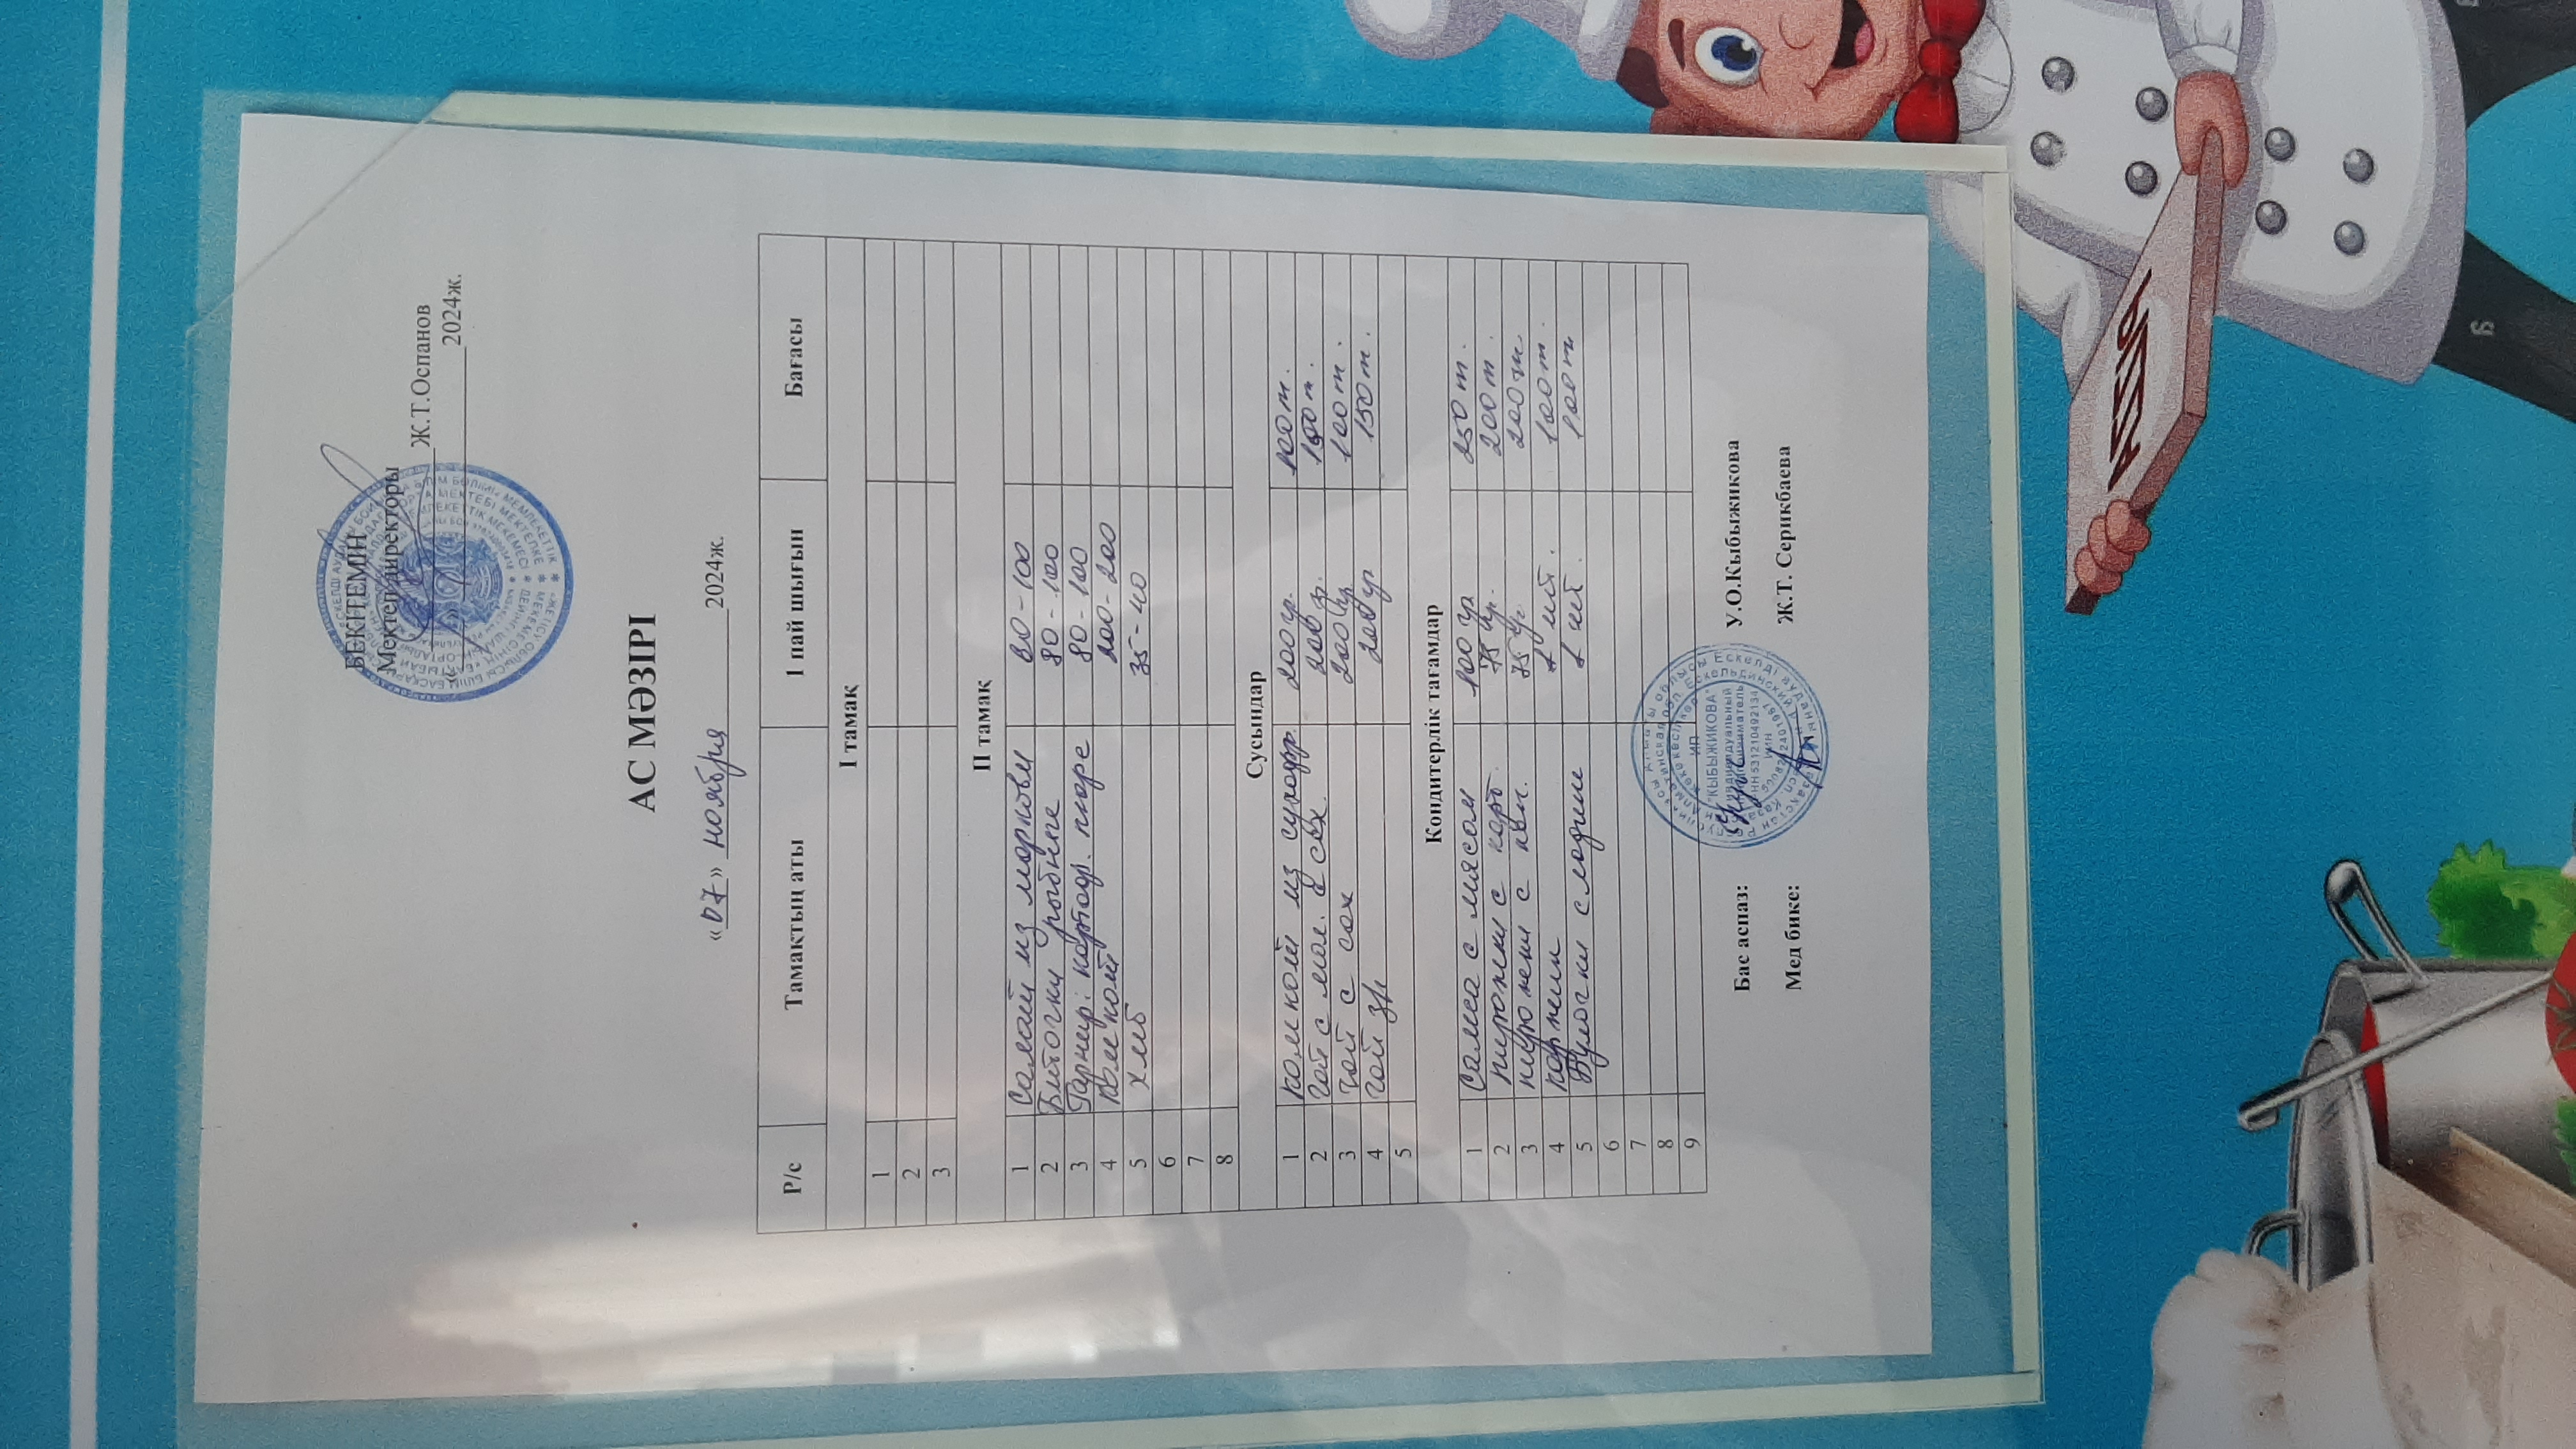 БЕКІТЕМІН
Мектеп директоры
Ж.Т.Оспанов
« » 2024ж.
АС МӘЗІРІ
«07» ноября 2024ж.
Р/с Тамақтың аты 1 пай шығын Бағасы
І тамақ
1
2
3
ІІ тамақ
1 Салат из моркови 80-100
2 Биточки рыбные 80-100
3 Гарнир: картоф. пюре 80-100
4 компот 200-200
5 хлеб 35-40
6
7
8
Сусындар
1 компот из сухофр. 200гр. 100т.
2 чай с мол. с сах. 200гр. 100т.
3 чай с сах 200гр 100т.
4 чай 200гр 150т.
5
Кондитерлік тағамдар
1 Самса с мясом 100гр 250т.
2 пирожки с карт. 75гр. 200т.
3 пирожки с кап. 75гр 200т.
4 коржик 1 шт. 100т.
5 Булочки сладкие 1 шт. 100т
6
7
8
9
Бас аспаз: У.О.Кыбыжикова
Мед бике: Ж.Т. Серикбаева
ИП
"КЫБЫЖИКОВА"
индивидуальный
предприниматель
РНН 531210492134
ИИН
PIZZA